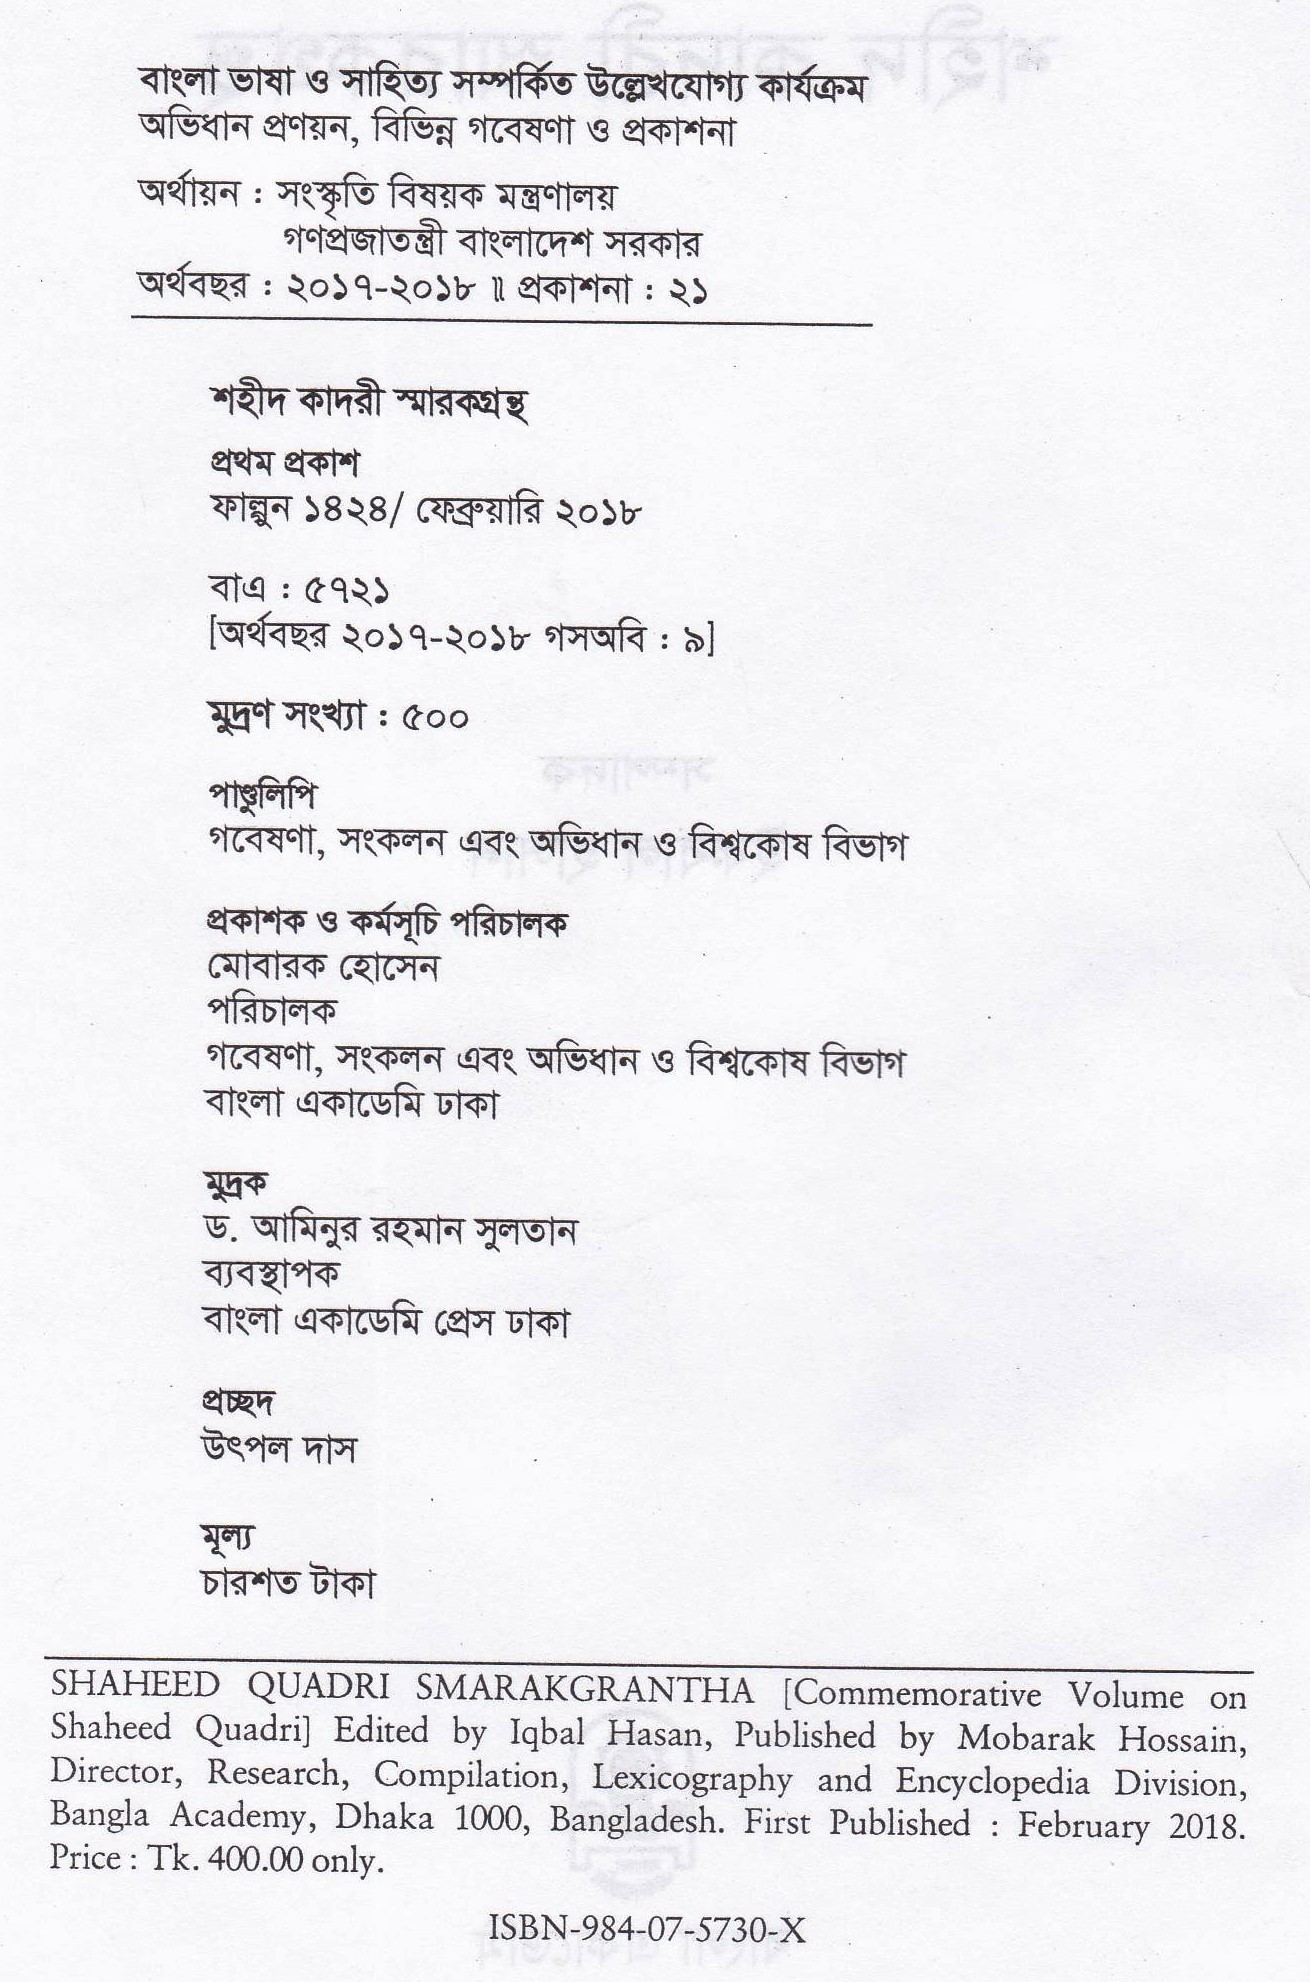 বাংলা ভাষা ও সাহিত্য সম্পর্কিত উল্লেখযোগ্য কার্যক্রম
অভিধান প্রণয়ন, বিভিন্ন গবেষণা ও প্রকাশনা
অর্থায়ন : সংস্কৃতি বিষয়ক মন্ত্রণালয়
গণপ্রজাতন্ত্রী বাংলাদেশ সরকার
অর্থবছর : ২০১৭-২০১৮ ॥ প্রকাশনা : ২১
শহীদ কাদরী স্মারকগ্রন্থ
প্রথম প্রকাশ
ফাল্গুন ১৪২৪/ ফেব্রুয়ারি ২০১৮
বাএ : ৫৭২১
[অর্থবছর ২০১৭-২০১৮ গসঅবি : ৯]
মুদ্রণ সংখ্যা : ৫০০
পাণ্ডুলিপি
গবেষণা, সংকলন এবং অভিধান ও বিশ্বকোষ বিভাগ
প্রকাশক ও কর্মসূচি পরিচালক
মোবারক হোসেন
পরিচালক
গবেষণা, সংকলন এবং অভিধান ও বিশ্বকোষ বিভাগ
বাংলা একাডেমি ঢাকা
মুদ্রক
ড. আমিনুর রহমান সুলতান
ব্যবস্থাপক
বাংলা একাডেমি প্রেস ঢাকা
প্রচ্ছদ
উৎপল দাস
মূল্য
চারশত টাকা
SHAHEED QUADRI SMARAKGRANTHA [Commemorative Volume on
Shaheed Quadri] Edited by Iqbal Hasan, Published by Mobarak Hossain,
Director, Research, Compilation, Lexicography and Encyclopedia Division,
Bangla Academy, Dhaka 1000, Bangladesh. First Published : February 2018.
Price : Tk. 400.00 only.
ISBN-984-07-5730-X